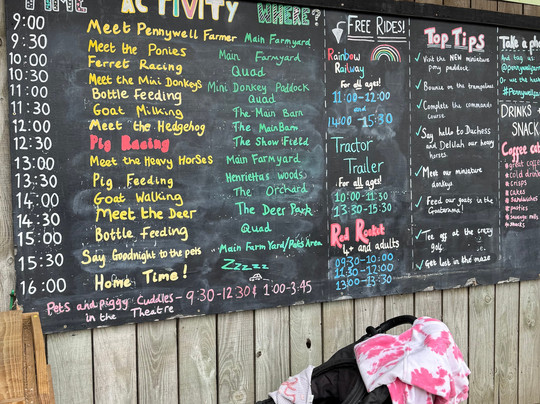 TIME ACTIVITY WHERE?
9:00 Meet Pennywell Farmer Main Farmyard
9:30 Meet the Ponies Main Farmyard
10:00 Ferret Racing Quad
10:30 Meet the Mini Donkeys Mini Donkey Paddock
11:00 Bottle Feeding Quad
11:30 Goat Milking The Main Barn
12:00 Meet the Hedgehog The Main Barn
12:30 Pig Racing The Showfield
13:00 Meet the Heavy Horses Main Farmyard
13:30 Pig Feeding Henriettas Woods
14:00 Goat Walking The Orchard
14:30 Meet the Deer The Deer Park
15:00 Bottle Feeding Quad
15:30 Say Goodnight to the pets Main Farm Yard/Pets Area
16:00 Home Time! Zzzzz
Pets and piggy Cuddles - 9:30-12:30 & 1:00-3:45
in the Theatre
FREE RIDES!
Rainbow
Railway
For all ages!
11:00-12:00
and
14:00-15:30
Tractor
Trailer
For all ages!
10:00-11:30
13:30-15:30
Red Rocket
4+ and adults
09:30-10:00
11:30-12:00
13:00-13:30
Top Tips
Visit the NEW miniature
pony paddock
Bounce on the trampolines
Complete the commando
course
Say hello to Duchess
and Delilah our heavy
horses
Meet our miniature
donkeys
Feed our goats in the
Goatorama!
Tee off at the crazy
golf
Get lost in the maze
Take a
And tag
DRINKS
SNACK
Coffee
cold drinks
crisps
cakes
sandwiches
pasties
sausage rolls
snacks